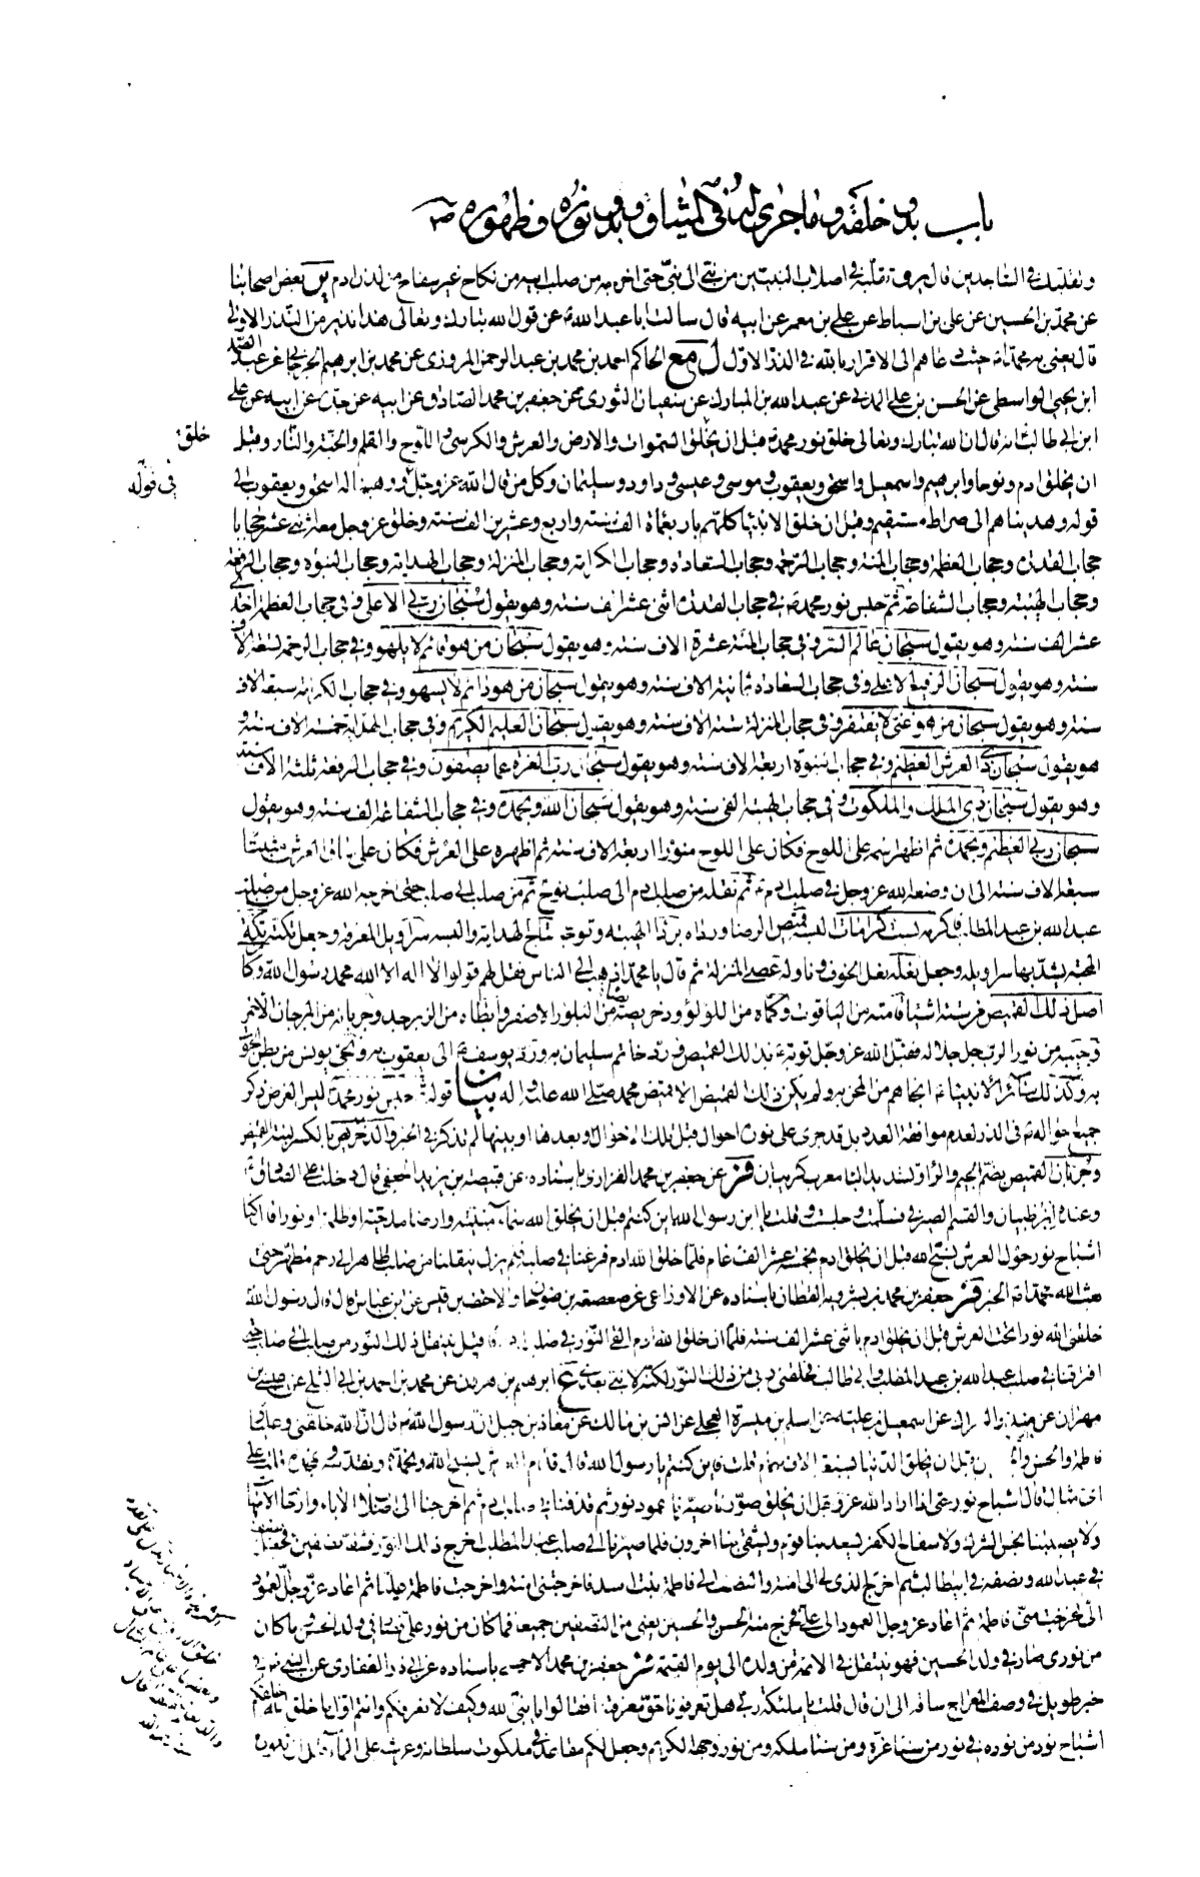 باب بدو خلقه وما جرى له في الميثاق وبدو نوره وظهوره ص
وتقلبك في الساجدين قال يرويه تقلبه في اصلاب النبيين من نبي الى نبي حتى اخرجه من صلب ابيه من نكاح غير سفاح من لدن ادم بعض اصحابنا
عن محمد بن الحسين عن علي بن اسباط عن علي بن معمر عن ابيه قال سالت ابا عبد الله ع عن قول الله تبارك وتعالى هذا نذير من النذر الاولى
قال يعني به محمدا حيث دعاهم الى الاقرار بالله في الذر الاول ل مع الحاكم احمد بن محمد بن عبد الرحمن المروزي عن محمد بن ابرهيم الجرجاني عن عبد الصمد
ابن يحيى الواسطي عن الحسن بن علي المدني عن عبد الله بن المبارك عن سفيان الثوري عن جعفر بن محمد الصادق عن ابيه عن جده عن ابيه عن علي
ابن ابي طالب انه قال ان الله تبارك وتعالى خلق نور محمد ص قبل ان يخلق السموات والارض والعرش والكرسي واللوح والقلم والجنة والنار وقبل
خلق
ان يخلق ادم ونوحا وابرهيم واسمعيل واسحق ويعقوب وموسى وعيسى وداود وسليمان وكل من قال الله عز وجل ووهبنا له اسحق ويعقوب الى
في قوله
قوله وهديناهم الى صراط مستقيم وقبل ان خلق الانبيا كلهم باربعمائة الف سنة واربع وعشرين الف سنة وخلق عز وجل معه اثني عشر حجابا
حجاب القدرة وحجاب العظمة وحجاب المنة وحجاب الرحمة وحجاب السعادة وحجاب الكرامة وحجاب المنزلة وحجاب الهداية وحجاب النبوة وحجاب الرفعة
وحجاب الهيبة وحجاب الشفاعة ثم حبس نور محمد ص في حجاب القدرة اثني عشر الف سنة وهو يقول سبحان ربي الاعلى وفي حجاب العظمة احد
عشر الف سنة وهو يقول سبحان عالم السر وفي حجاب المنة عشرة الاف سنة وهو يقول سبحان من هو قائم لا يلهو وفي حجاب الرحمة تسعة الاف
سنة وهو يقول سبحان الرفيع الاعلى وفي حجاب السعادة ثمانية الاف سنة وهو يقول سبحان من هو دائم لا يسهو وفي حجاب الكرامة سبعة الاف
سنة وهو يقول سبحان من هو غني لا يفتقر وفي حجاب المنزلة ستة الاف سنة وهو يقول سبحان العليم الكريم وفي حجاب الهداية خمسة الاف سنة و
هو يقول سبحان ذي العرش العظيم وفي حجاب النبوة اربعة الاف سنة وهو يقول سبحان رب العزة عما يصفون وفي حجاب الرفعة ثلثة الاف سنة
وهو يقول سبحان ذي الملك والملكوت وفي حجاب الهيبة الفي سنة وهو يقول سبحان الله وبحمده وفي حجاب الشفاعة الف سنة وهو يقول
سبحان ربي العظيم وبحمده ثم اظهر اسمه على اللوح فكان على اللوح منورا اربعة الاف سنة ثم اظهره على العرش فكان على ساق العرش مثبتا
سبعة الاف سنة الى ان وضعه الله عز وجل في صلب ادم ع ثم نقله من صلب ادم الى صلب نوح ثم من صلب الى صلب حتى اخرجه الله عز وجل من صلب
عبد الله بن عبد المطلب فاكرمه بست كرامات البسه قميص الرضا ورداه برداء الهيبة وتوجه بتاج الهداية والبسه سراويل المعرفة وجعل تكته تكة
المحبة يشد بها سراويله وجعل نعله نعل الخوف وناوله عصا المنزلة ثم قال يا محمد اذهب الى الناس فقل لهم قولوا لا اله الا الله محمد رسول الله وكان
اصل ذلك القميص من ستة اشياء قامته من الياقوت وكماه من اللولؤ ودخريصه من البلور الاصفر وابطاه من الزبرجد وجربانه من المرجان الاحمر
وجيبه من نور الرب جل جلاله فقبل الله عز وجل توبة ادم بذلك القميص ورد خاتم سليمان به ورد يوسف ع الى يعقوب به ونجى يونس من بطن الحوت
به وكذلك سائر الانبياء انجاهم من المحن به ولم يكن ذلك القميص الا قميص محمد صلى الله عليه واله بيان قوله ثم حبس نور محمد ليس الغرض ذكر
جميع احواله ع في الذر لعدم موافقة العدد بل قد جرى على نوره احوال قبل تلك الاحوال وبعدها او بينها لم تذكر في الخبر والدخريص بالكسر لبنة القميص
وجربان القميص بضم الجيم والراء وتشديد الباء معرب كريبان فر عن جعفر بن محمد الفزاري باسناده عن قبيصة بن يزيد الجعفي قال دخلت على الصادق ع
وعنده ابن ظبيان والقسم الصيرفي فسلمت وجلست وقلت يا ابن رسول الله اين كنتم قبل ان يخلق الله سماء مبنية وارضا مدحية او ظلمة او نورا قال كنا
اشباح نور حول العرش نسبح الله قبل ان يخلق ادم بخمسة عشر الف عام فلما خلق الله ادم فرغنا في صلبه فلم يزل ينقلنا من صلب طاهر الى رحم مطهر حتى
بعث الله محمدا ص الخبر فر جعفر بن محمد بن بشرويه القطان باسناده عن الاوزاعي عن صعصعة بن صوحان والاحنف بن قيس عن ابن عباس قال قال رسول الله
خلقني الله نورا تحت العرش قبل ان يخلق ادم باثني عشر الف سنة فلما ان خلق الله ادم القى النور في صلب ادم فاقبل ينتقل ذلك النور من صلب الى صلب حتى
افترقنا في صلب عبد الله بن عبد المطلب وابي طالب فخلقني ربي من ذلك النور لكنه لا نبي بعدي ع ابرهيم بن هرون عن محمد بن احمد بن ابي الثلج عن عيسى بن
مهران عن منذر الشراك عن اسمعيل بن علية عن اسلم بن ميسرة العجلي عن انس بن مالك عن معاذ بن جبل ان رسول الله ص قال ان الله خلقني وعليا
فاطمة والحسن والحسين قبل ان يخلق الدنيا بسبعة الاف عام قلت فاين كنتم يا رسول الله قال قدام العرش نسبح الله ونحمده ونقدسه ونمجده قلت على
اي مثال قال اشباح نور حتى اذا اراد الله عز وجل ان يخلق صورنا صيرنا عمود نور ثم قذفنا في صلب ادم ثم اخرجنا الى اصلاب الاباء وارحام الامهات
ولا يصيبنا نجس الشرك ولا سفاح الكفر يسعد بنا قوم ويشقى بنا اخرون فلما صيرنا الى صلب عبد المطلب اخرج ذلك النور فشقه نصفين فجعل نصفه
في عبد الله ونصفه في ابي طالب ثم اخرج الذي لي الى امنة والنصف الى فاطمة بنت اسد فاخرجتني امنة واخرجت فاطمة عليا ثم اعاد عز وجل العمود
الي فخرجت مني فاطمة ثم اعاد عز وجل العمود الى علي فخرج منه الحسن والحسين يعني من النصفين جميعا فما كان من نور علي فصار في ولد الحسن وما كان
من نوري صار في ولد الحسين فهو ينتقل في الائمة من ولده الى يوم القيمة فر جعفر بن محمد الاحمسي باسناده عن ابي ذر الغفاري عن النبي ص في
خبر طويل في وصف المعراج ساقه الى ان قال قلت يا ملئكة ربي هل تعرفونا حق معرفتنا فقالوا يا نبي الله وكيف لا نعرفكم وانتم اول ما خلق الله خلقكم
اشباح نور من نوره في نور من سناء عزه ومن سناء ملكه ومن نور وجهه الكريم وجعل لكم مقاعد في ملكوت سلطانه وعرشه على الماء قبل ان تكون